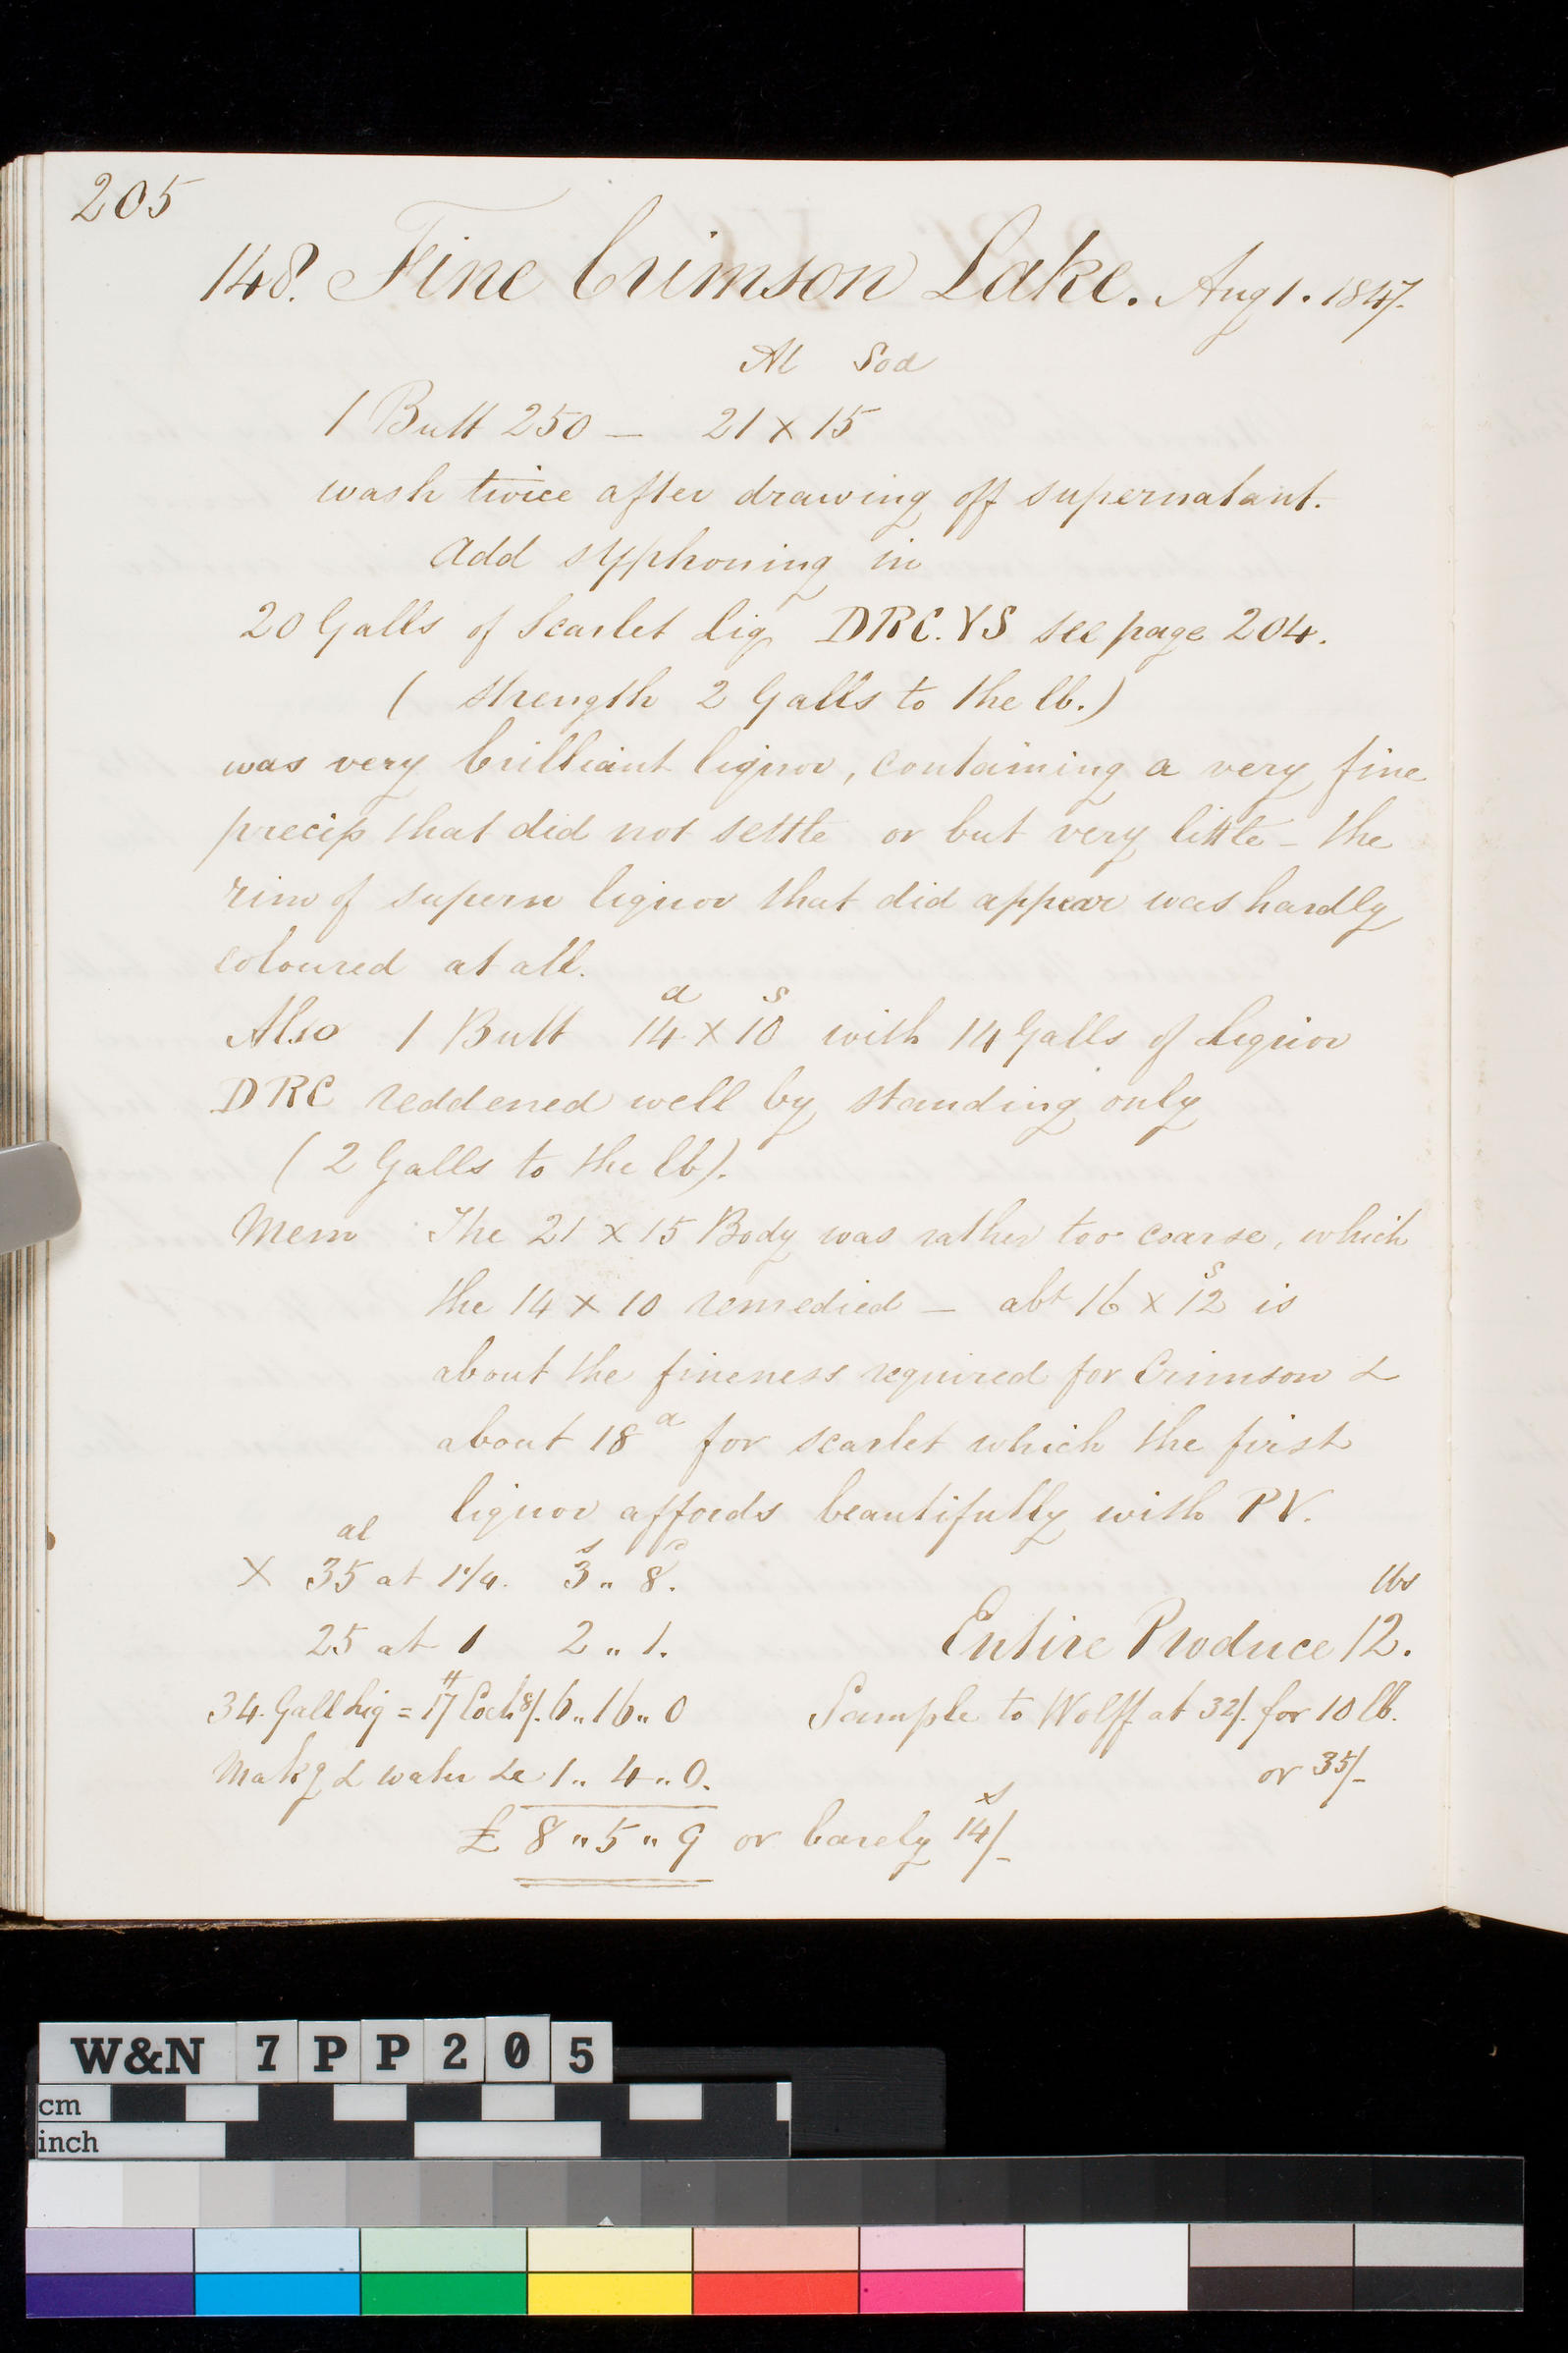 205
148. Fine Crimson Lake. Aug 1. 1847.
Al Sod
1 Butt 250 — 21 x 15
wash twice after drawing off supernatant.
Add syphoning in
20 Galls of Scarlet Liq DRC.YS see page 204.
( strength 2 Galls to the lb.)
was very brilliant liquor, containing a very fine
precip that did not settle or but very little – the
rim of supern liquor that did appear was hardly
coloured at all.
a s
Also 1 Butt 14 x 10 with 14 Galls of Liquor
DRC reddened well by standing only
( 2 Galls to the lb).
Mem The 21 x 15 Body was rather too coarse, which
the 14 x 10 remedied — abt 16 x 12 s is
about the fineness required for Crimson &
about 18 a for scarlet which the first
liquor affords beautifully with PV.
al s d
X 35 at 1 1/4. 3 " 8.
lbs
25 at 1 2 " 1.
Entire Produce 12.
34. Gall Liq = 17 Coch 8/. 6 " 16 " 0
Sample to Wolff at 32/. for 10 lb.
Makg & water &c 1 " 4 " 0.
or 35/-
£ 8 " 5 " 9 or barely 14/- s
W&N 7PP205
cm
inch